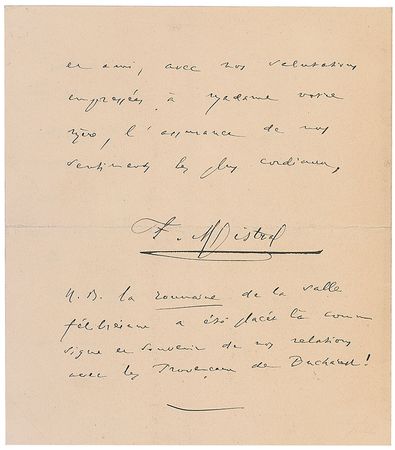 en ami, avec nos salutations
empressées à madame votre
mère, l'assurance de nos
sentiments les plus cordiaux,
F. Mistral
N. B. la roumaine de la salle
félibréenne a été placée là comme
signe et souvenir de nos relations
avec les Provençaux de Bucharest!